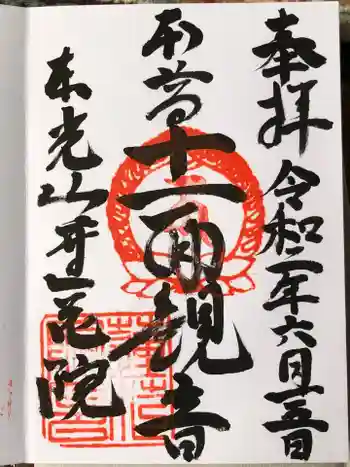 奉拝 令和二年六月十五日
本尊十一面観音
東光山蓮花院